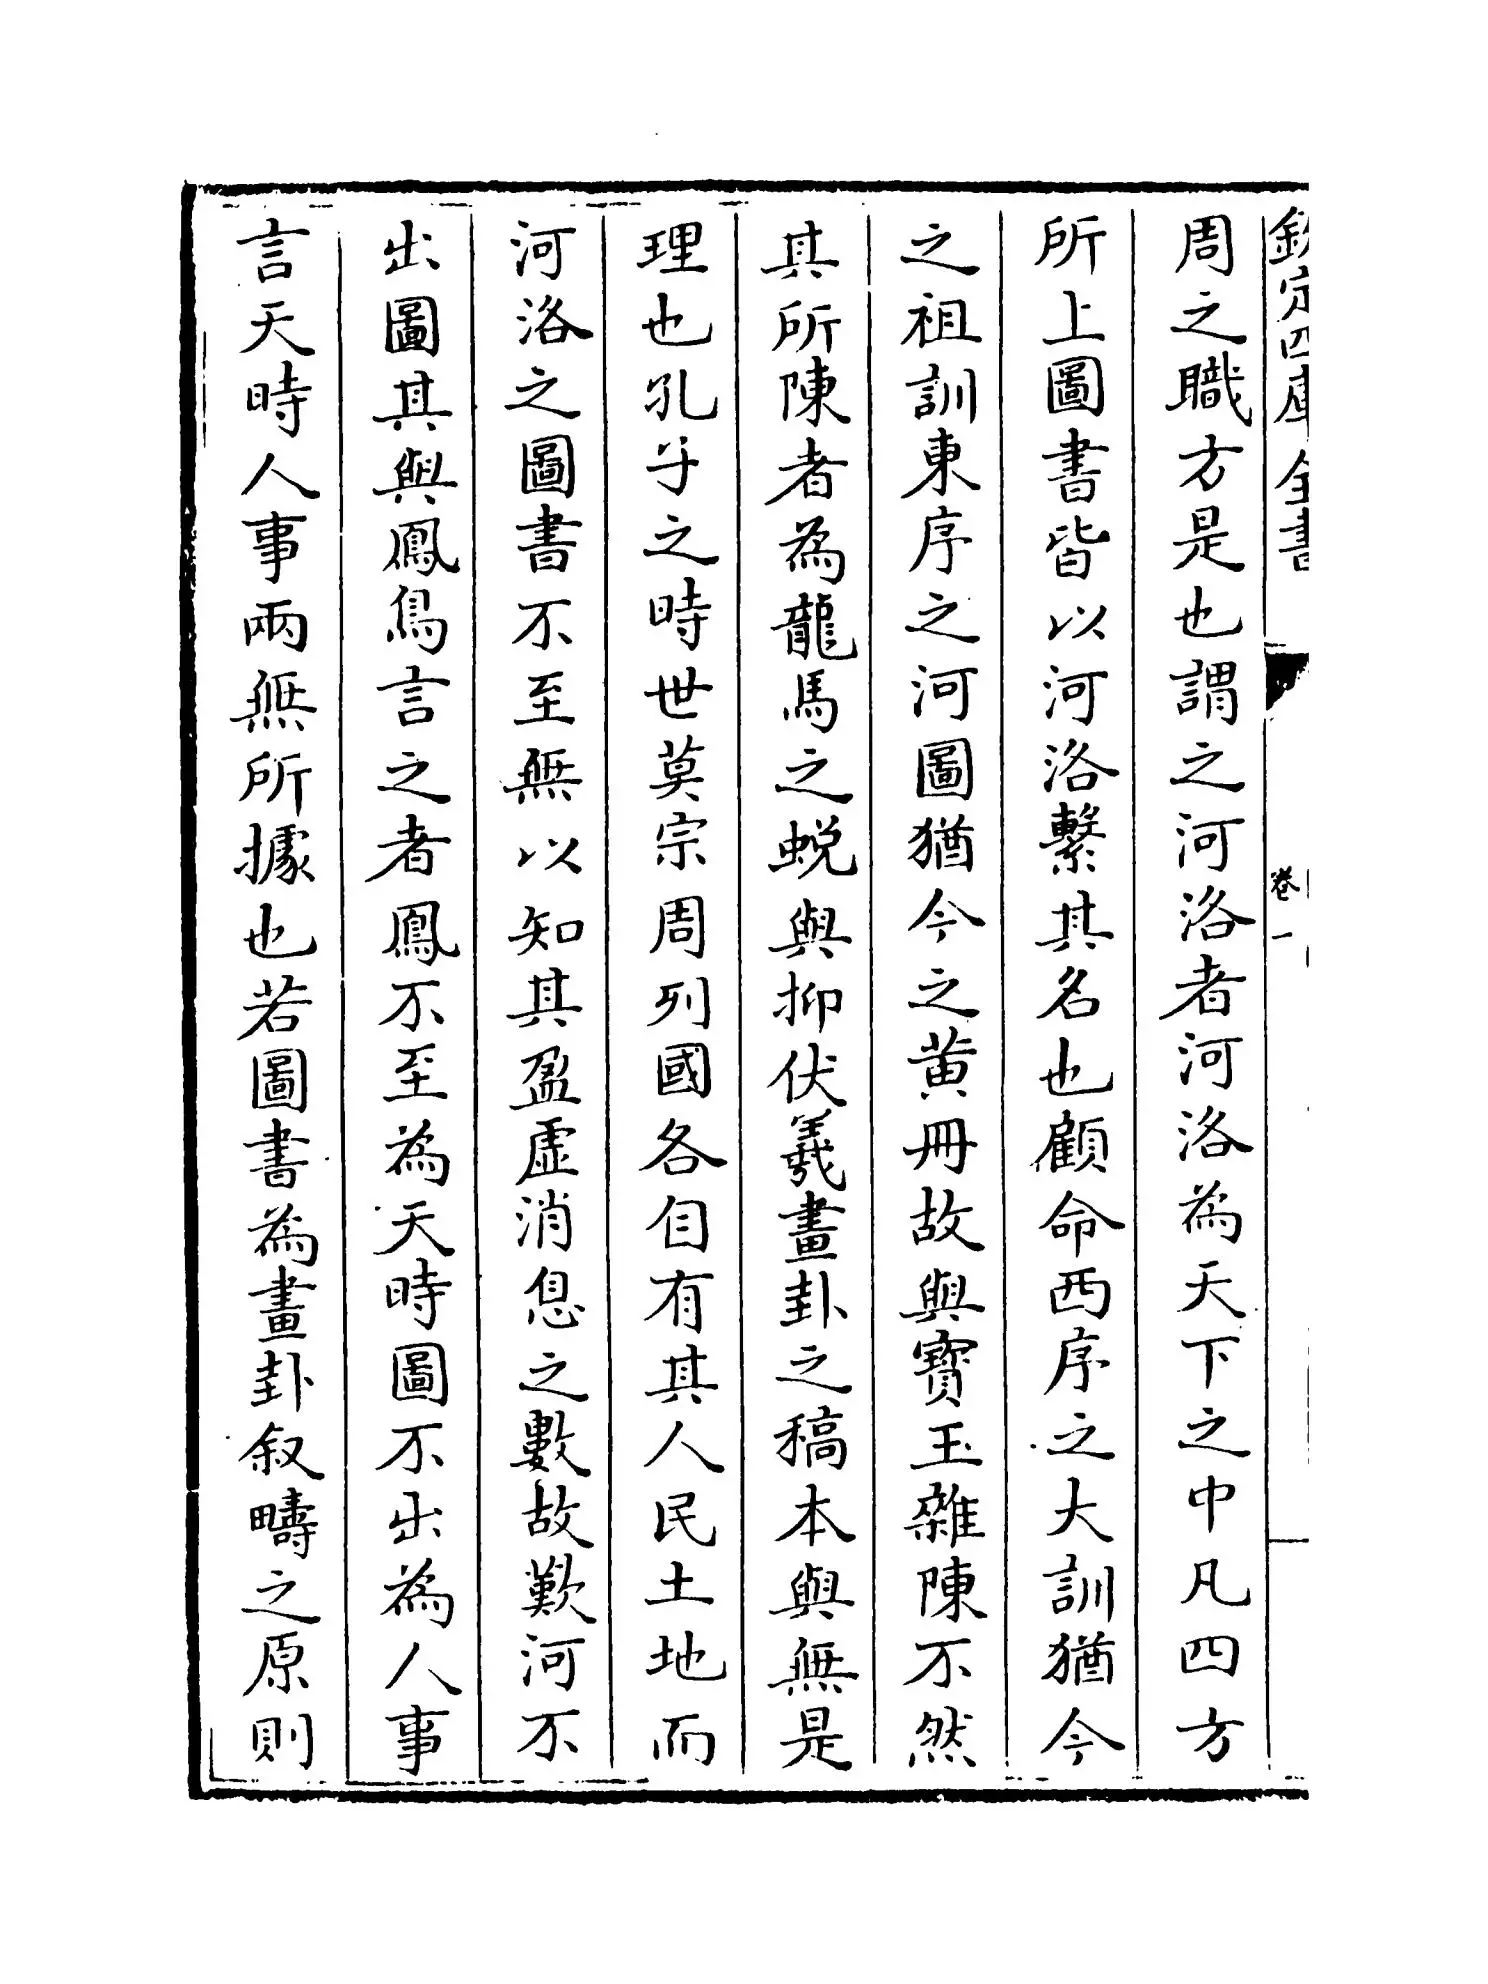 欽定四庫全書
卷一
周之職方是也謂之河洛者河洛為天下之中凡四方
所上圖書皆以河洛繫其名也顧命西序之大訓猶今
之祖訓東序之河圖猶今之黄冊故與寳玉雜陳不然
其所陳者為龍馬之蜕與抑伏羲畫卦之稿本與無是
理也孔子之時世莫宗周列國各自有其人民土地而
河洛之圖書不至無以知其盈虛消息之數故歎河不
出圖其與鳳鳥言之者鳳不至為天時圖不出為人事
言天時人事兩無所據也若圖書為畫卦叙疇之原則